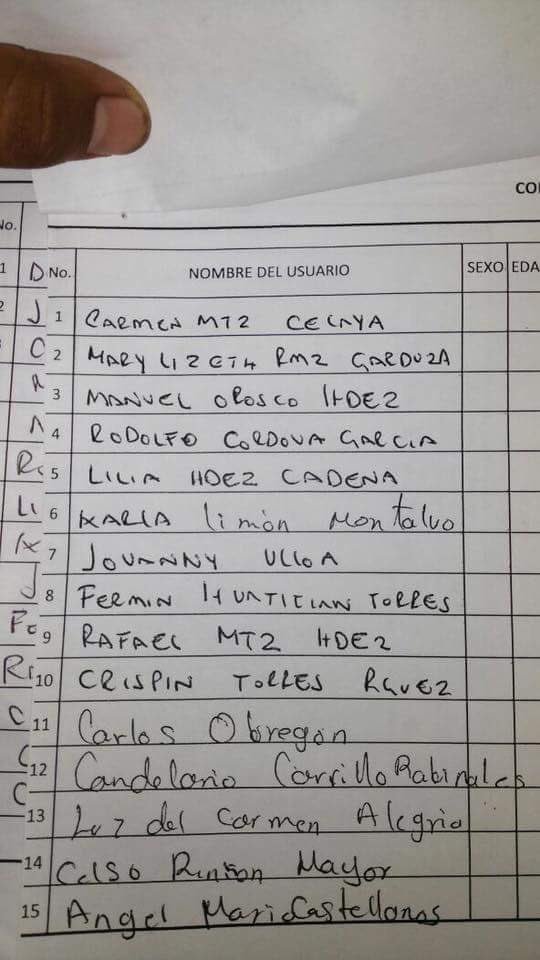 CO
No. NOMBRE DEL USUARIO SEXO EDA
1 CARMEN MTZ CELAYA
2 MARY LIZETH RMZ GARDUZA
3 MANUEL OROSCO HDEZ
4 RODOLFO CORDOVA GARCIA
5 LILIA HDEZ CADENA
6 KARLA Limón Montalvo
7 JOVANNY ULLOA
8 FERMIN TORRES
9 RAFAEL MTZ HDEZ
10 CRISPIN TORRES RGUEZ
11 Carlos Obregón
12 Candelario Carrillo Rabinales
13 Luz del Carmen Alegria
14 Celso Mayor
15 Angel Mario Castellanos